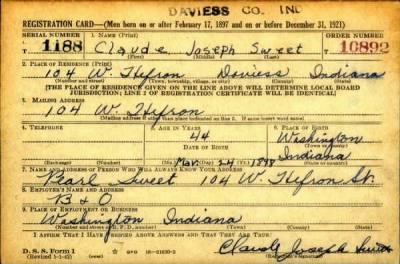 DAVIESS CO. IND
REGISTRATION CARD—(Men born on or after February 17, 1897 and on or before December 31, 1921)
SERIAL NUMBER 1. NAME (Print) ORDER NUMBER
T 1188 Claude Joseph Sweet T 10892
(First) (Middle) (Last)
2. PLACE OF RESIDENCE (Print)
104 W. Hefron Daviess Indiana
(Number and street) (Town, township, village, or city) (County) (State)
[THE PLACE OF RESIDENCE GIVEN ON THE LINE ABOVE WILL DETERMINE LOCAL BOARD
JURISDICTION; LINE 2 OF REGISTRATION CERTIFICATE WILL BE IDENTICAL]
3. MAILING ADDRESS
104 W. Hefron
[Mailing address if other than place indicated on line 2. If same insert word same]
4. TELEPHONE 5. AGE IN YEARS 6. PLACE OF BIRTH
44 Washington
DATE OF BIRTH
Indiana
Mar. 24 1898
(Exchange) (Number) (Mo.) (Day) (Yr.) (State or country)
7. NAME AND ADDRESS OF PERSON WHO WILL ALWAYS KNOW YOUR ADDRESS
Pearl Sweet 104 W Hefron St.
8. EMPLOYER'S NAME AND ADDRESS
B & O
9. PLACE OF EMPLOYMENT OR BUSINESS
Washington Indiana
(Number and street or R. F. D. number) (Town) (County) (State)
I AFFIRM THAT I HAVE VERIFIED ABOVE ANSWERS AND THAT THEY ARE TRUE.
D. S. S. Form 1 Claude Joseph Sweet
(Revised 1-1-42) (over) GPO 16—21630-2 (Registrant's signature)